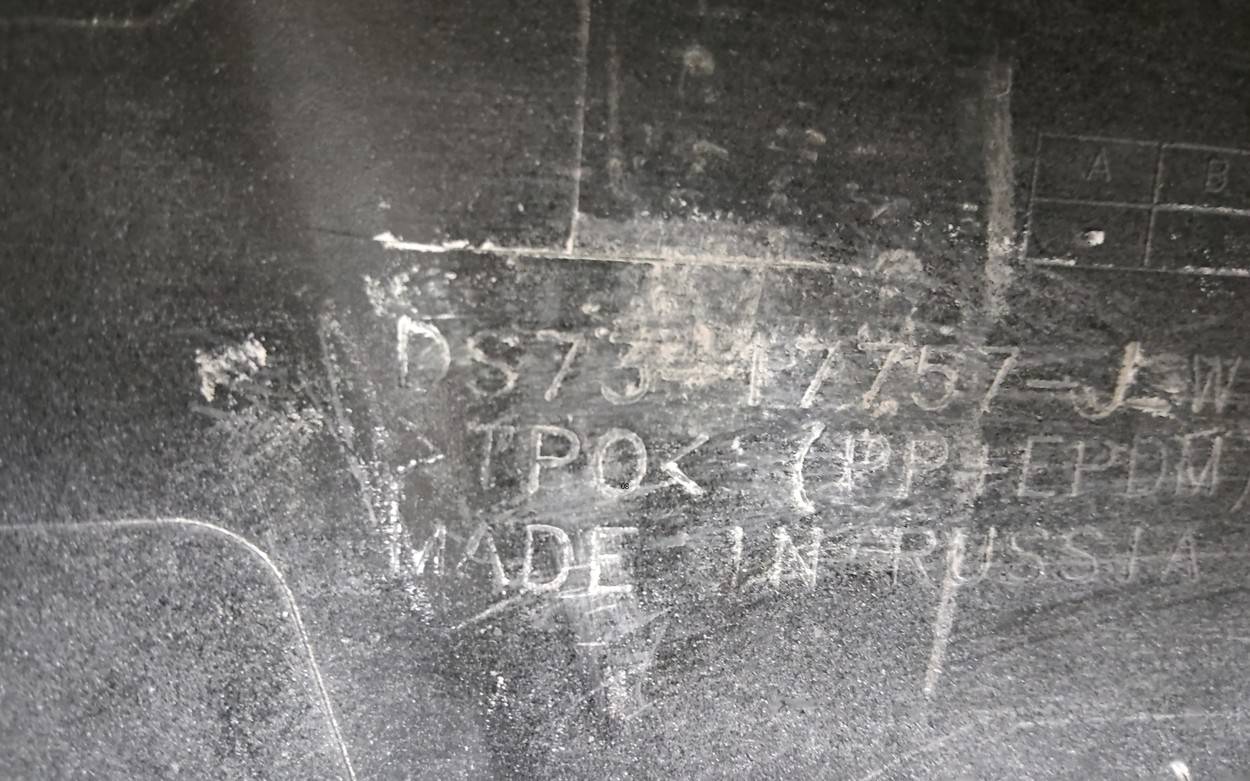 A B
DS73-17757-J-W
>TPO< (PP+EPDM)
MADE IN RUSSIA